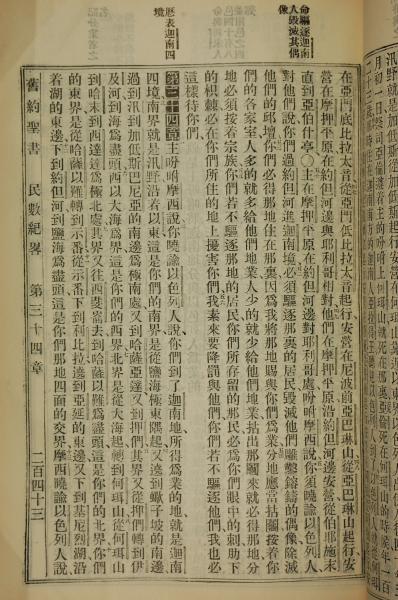 命驅逐迦南
人毀滅其偶
像
在亞門底比拉太音從亞門低比拉太音起行安營在尼波前亞巴琳山從亞巴琳山起行安
營在摩押平原在約但河邊與耶利哥相對他們在摩押平原沿約但河邊安營從伯耶施末
直到亞伯什亭○主在摩押平原在約但河邊對耶利哥處吩咐摩西說你須曉諭以色列人
對他們說你們過約但河進迦南境必須驅逐那裏的居民毀滅他們雕鑿鎔鑄的偶像除滅
他們的邱壇你們必得那地住在那裏因爲我將那地賜與你們爲業分地應當拈鬮按着你
們的各家室人多的就多給他們地業人少的就少給他們地業拈出那鬮來就必得那地分
地必須按着宗族你們若不驅逐那地的居民你們所存留的那民必爲你們眼中的刺肋下
的棘必在你們所住的地上擾害你們我素來要降罰與他們你們若不驅逐他們我也必
這樣待你們
歷表迦南四
境
第三十四章主吩咐摩西說你曉諭以色列人說你們到了迦南地所得爲業的地就是迦南
四境南界就是汛野沿着以東這是你們的南界是從鹽海極東隅起又遶到蠍子坡的南邊
過汛到加低斯巴尼亞的南邊爲極南處又到哈薩亞達又到押們其界又從押們轉到伊
及河到海爲盡頭西以大海爲界這是你們的西界北界是從大海起輓到何珥山從何珥山
到哈末到西達達爲極北處其界又往西斐崙去到哈薩以難爲盡頭這是你們的北界你們
的東界是從哈薩以難轉到示番從示番下到利比拉遶到亞延的東邊又下到基尼烈湖沿
着湖的東邊下到約但河到鹽海爲盡頭這是你們那地四面的交界摩西曉諭以色列人說
舊約聖書 民數紀畧 第三十四章 二百四十三